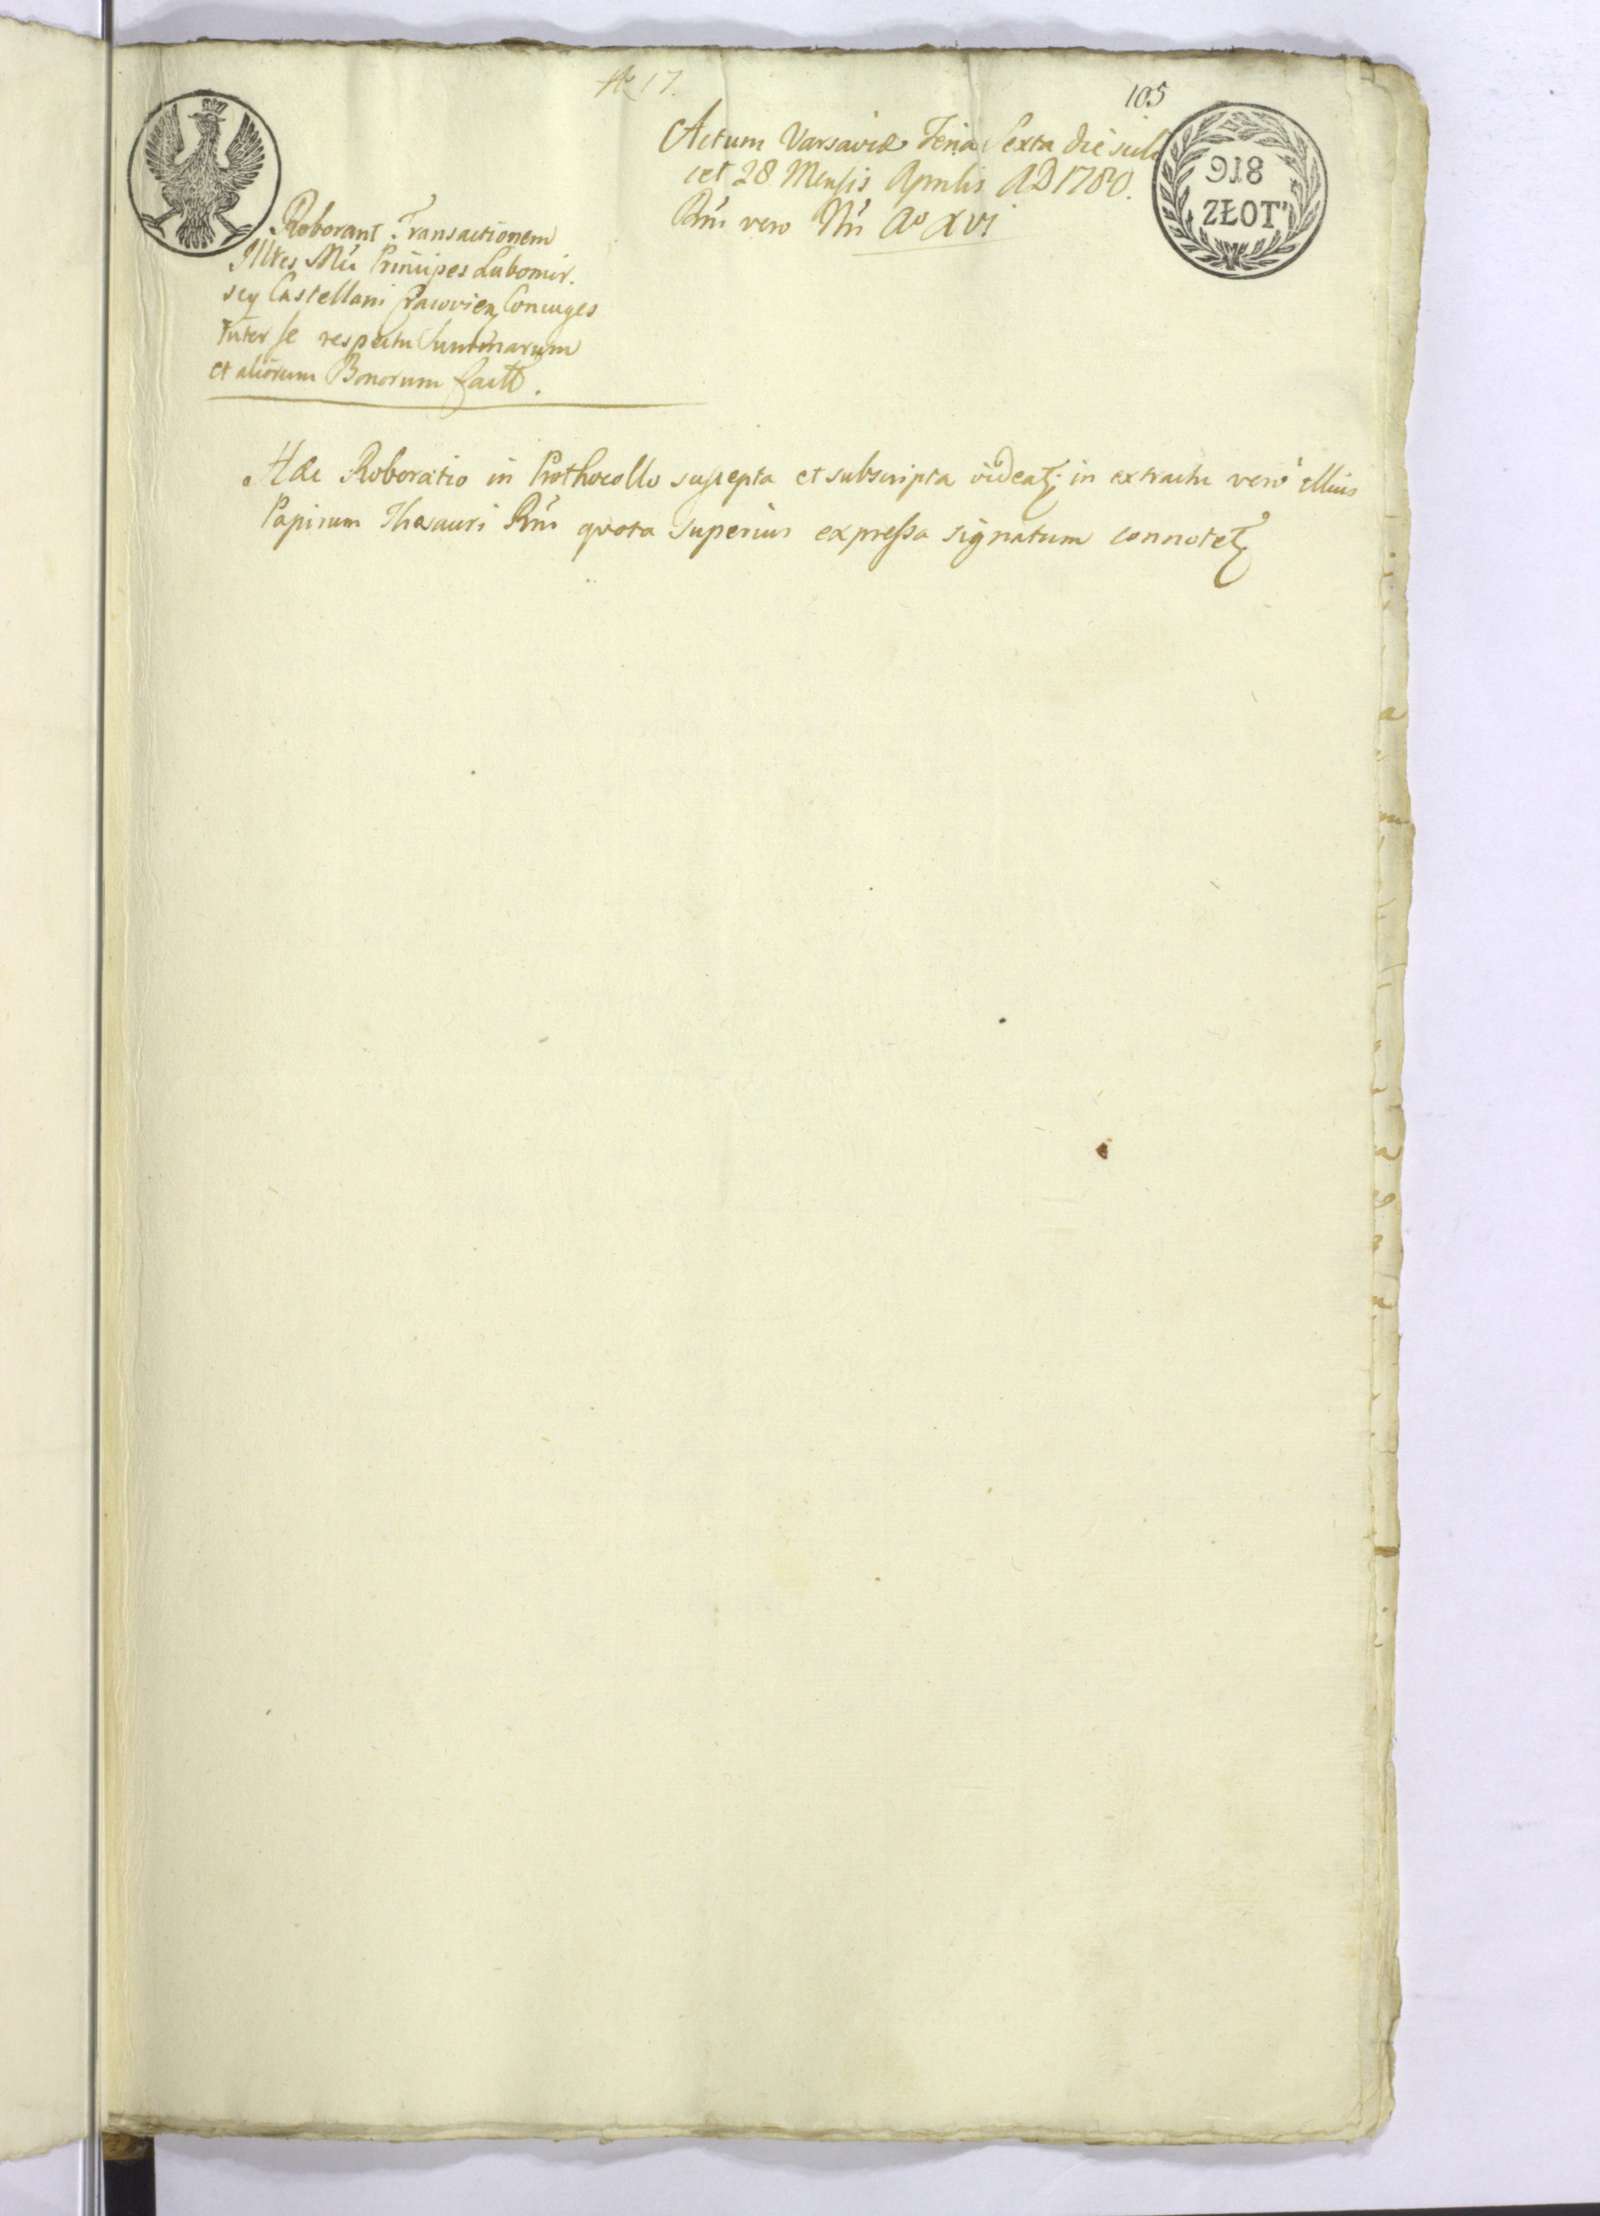 No 17.
105
Actum Varsaviæ Feria Sexta die scili
cet 28 Mensis Aprilis AD 1780.
Rni vero Nri Ao XVI
918
ZŁOT
Roborant Transactionem
Illtres Mci Principes Lubomir.
scy Castellani Cracovien Conjuges
Inter se respectu Summarum
et aliorum Bonorum fact.
Hæc Roboratio in Prothocollo suscepta et subscripta videat; in extractu vero illius
Papirum Thesauri Rni quota superius expressa signatum connotet